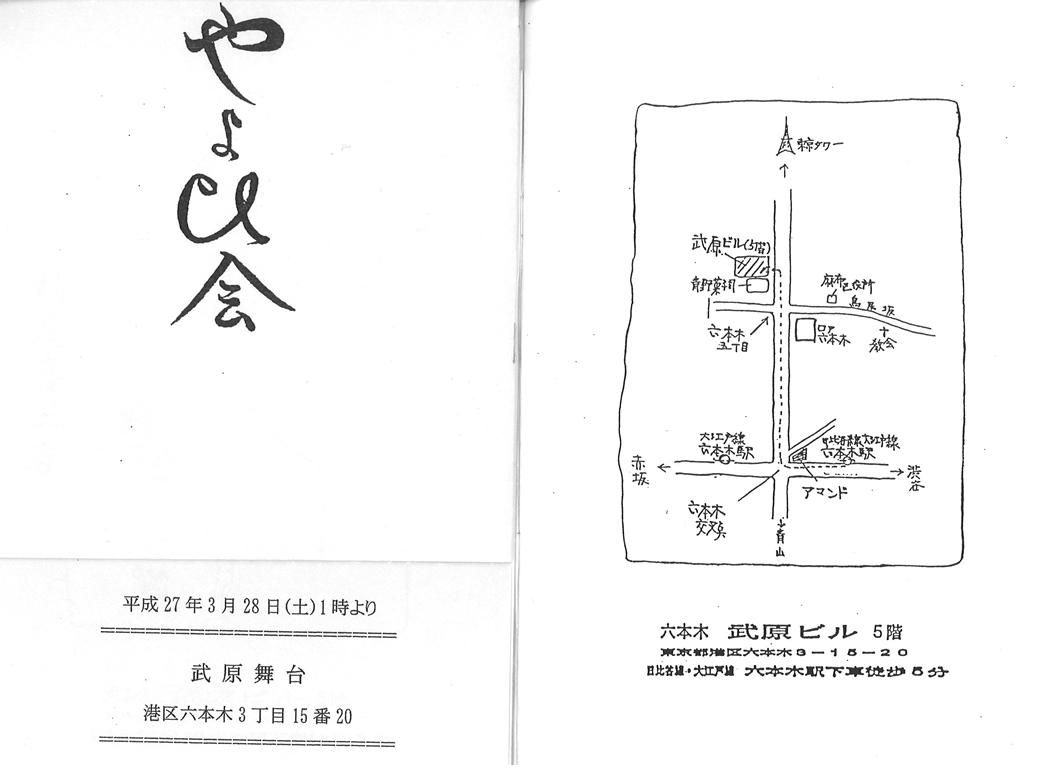 やよひ会
平成27年3月28日(土)1時より
武原舞台
港区六本木3丁目15番20
東京タワー
武原ビル(5階)
青野菓子司
麻布区役所
鳥居坂
六本木
五丁目
ロア
六本木
十
教会
大江戸線
六本木駅
日比谷線大江戸線
六本木駅
赤坂
渋谷
アマンド
六本木
交叉点
青山
六本木 武原ビル 5階
東京都港区六本木3-15-20
日比谷線・大江戸線 六本木駅下車徒歩5分